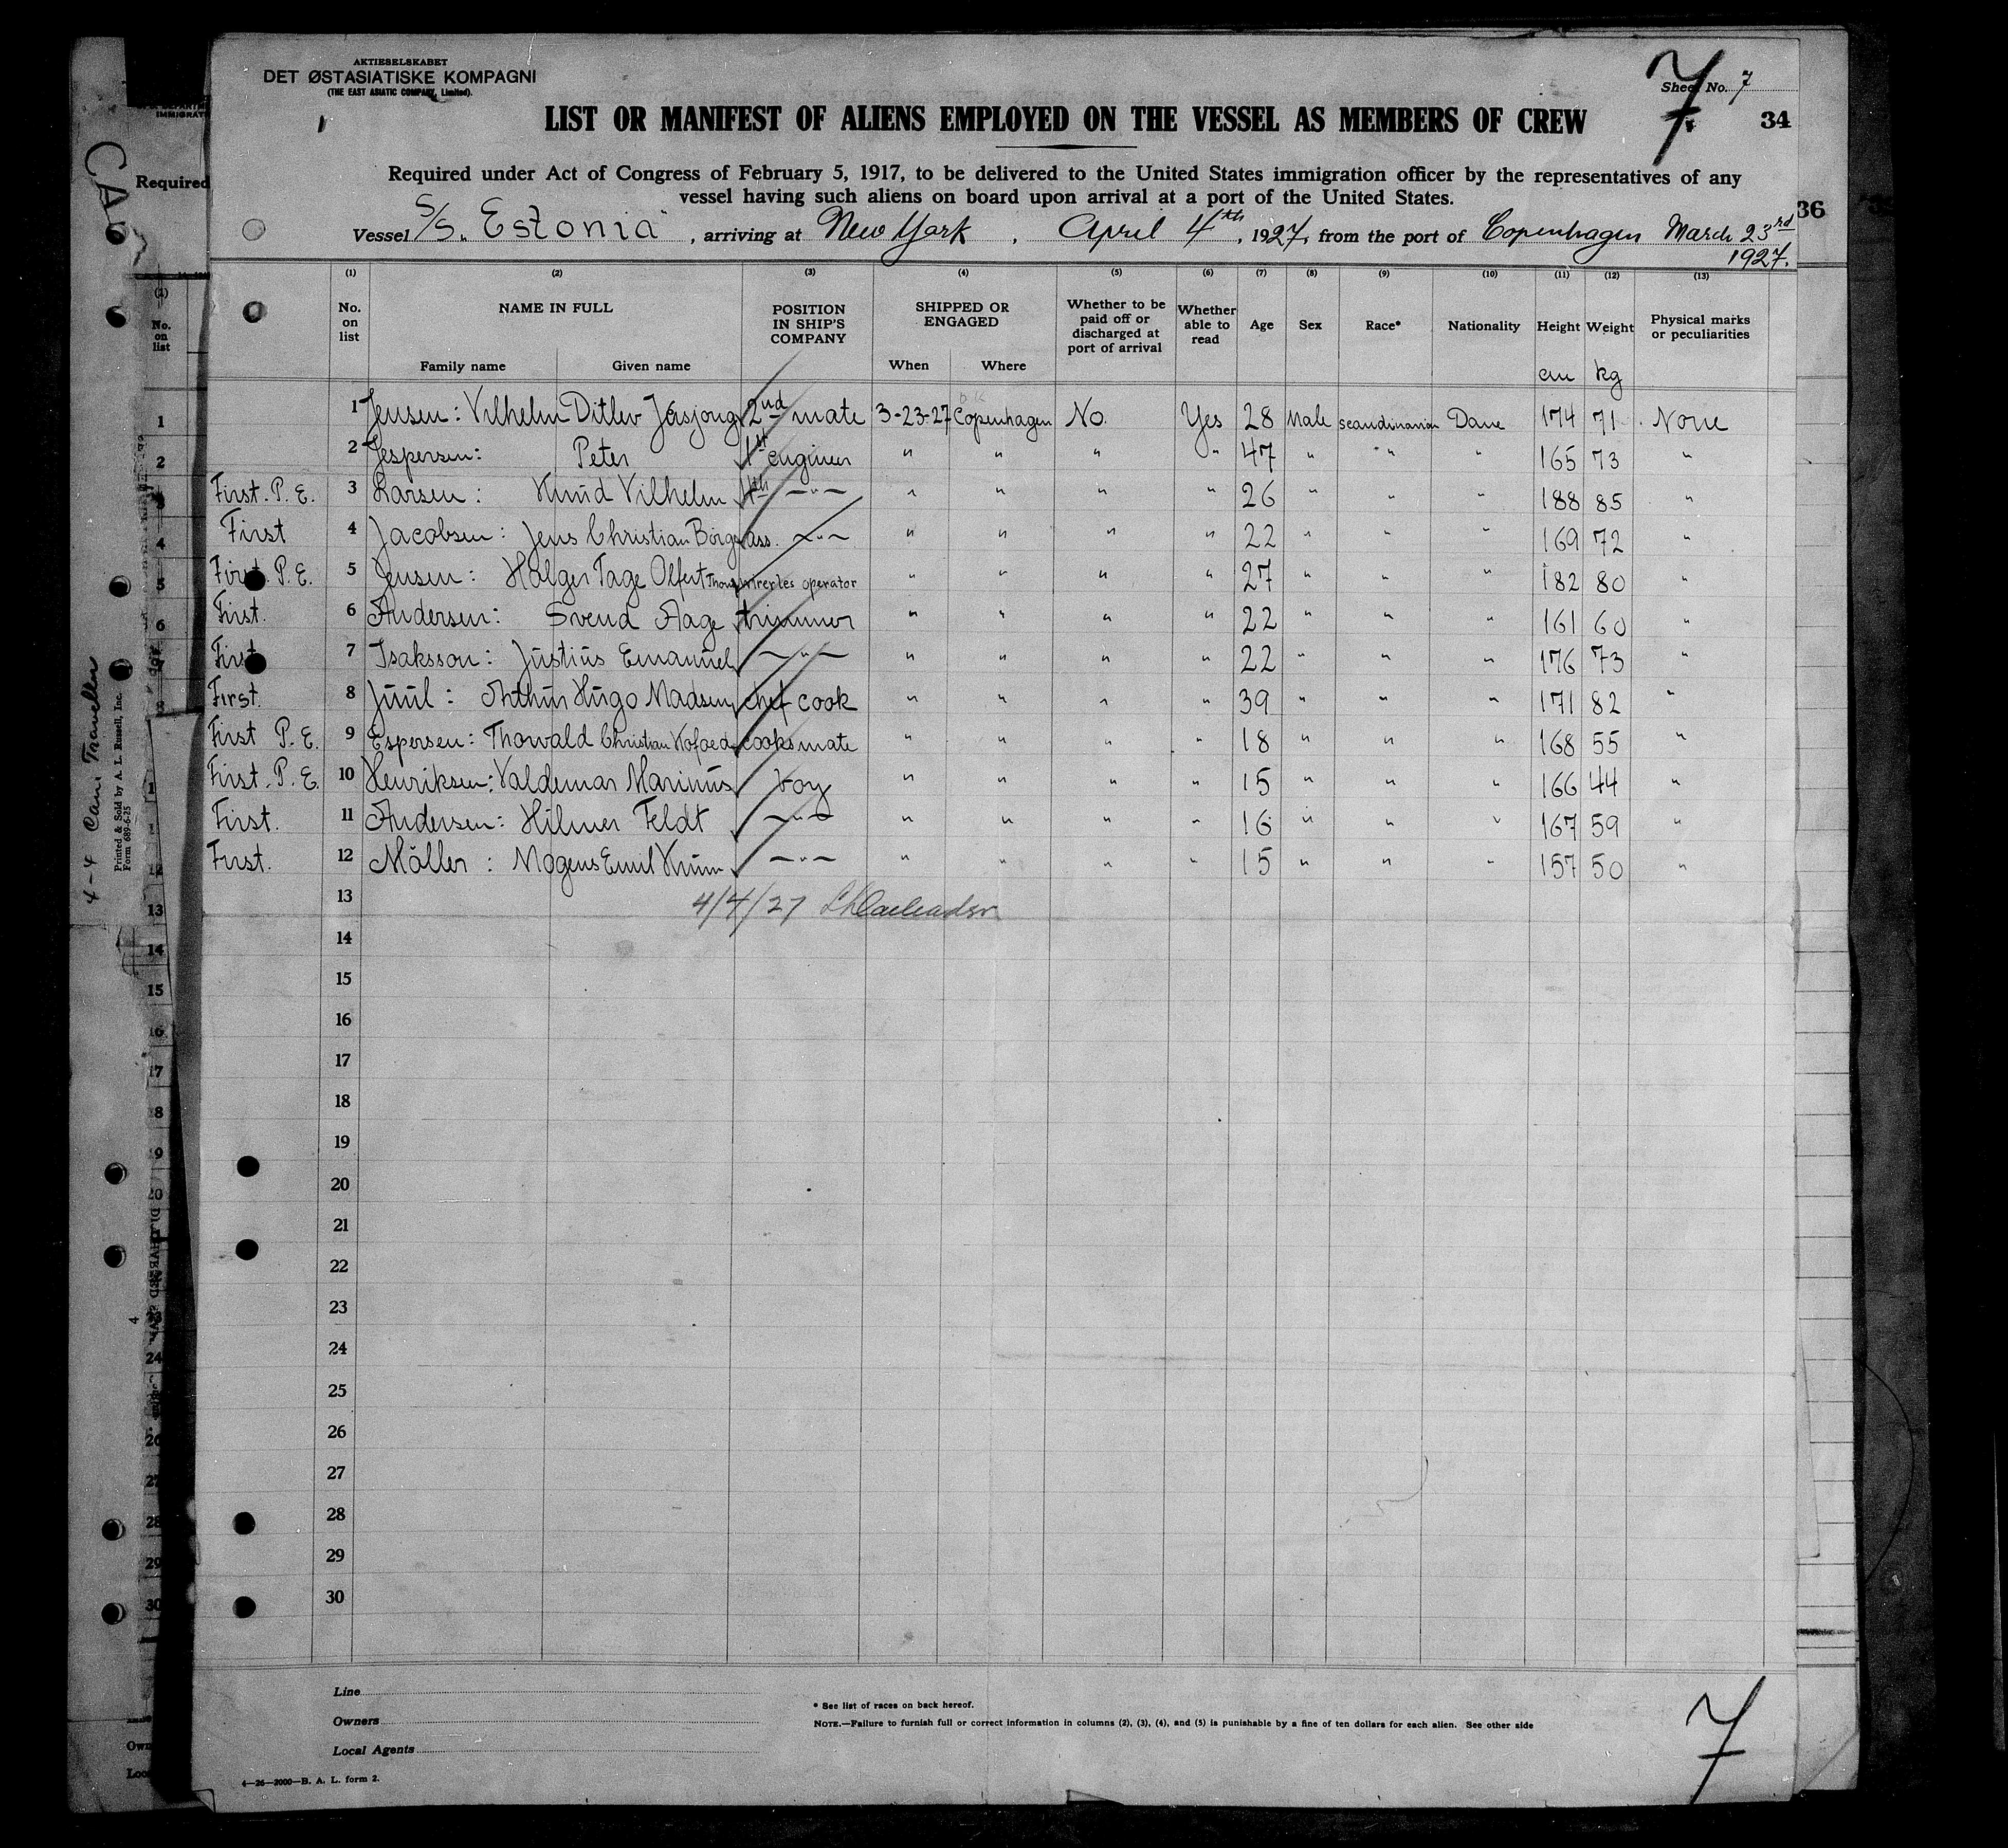 AKTIESELSKABET
DET ØSTASIATISKE KOMPAGNI
(THE EAST ASIATIC COMPANY, Limited).
Sheet No. 7
7
34
LIST OR MANIFEST OF ALIENS EMPLOYED ON THE VESSEL AS MEMBERS OF CREW
Required under Act of Congress of February 5, 1917, to be delivered to the United States immigration officer by the representatives of any
vessel having such aliens on board upon arrival at a port of the United States.
36
Vessel S/S. "Estonia", arriving at New York, April 4th, 1927, from the port of Copenhagen March 23rd
1927.
(1) (2) (3) (4) (5) (6) (7) (8) (9) (10) (11) (12) (13)
No. on list NAME IN FULL Family name Given name POSITION IN SHIP'S COMPANY SHIPPED OR ENGAGED When Where Whether to be paid off or discharged at port of arrival Whether able to read Age Sex Race* Nationality Height cm Weight kg Physical marks or peculiarities
1 Jensen: Vilhelm Ditlev 2nd mate 3-23-27 Copenhagen No. Yes 28 Male Scandinavian Dane 174 71 None
2 Jespersen: Peter 1st engineer " " " " 47 " " " 165 73 "
First. P. E. 3 Larsen: Knud Vilhelm 4th —"— " " " " 26 " " " 188 85 "
First 4 Jacobsen: Jens Christian Börge ass. —"— " " " " 22 " " " 169 72 "
First. P. E. 5 Jensen: Holger Tage Olfert operator " " " " 27 " " " 182 80 "
First. 6 Andersen: Svend Aage trimmer " " " " 22 " " " 161 60 "
First 7 Isaksson: Justius Emanuel —"— " " " " 22 " " " 176 73 "
First. 8 Juul: Arthur Hugo Madsen chef cook " " " " 39 " " " 171 82 "
First P. E. 9 Espersen: Thorvald Christian Kofoed cooks mate " " " " 18 " " " 168 55 "
First. P. E. 10 Henriksen: Valdemar Marinus boy " " " " 15 " " " 166 44 "
First. 11 Andersen: Hilmer Feldt —"— " " " " 16 " " " 167 59 "
First. 12 Möller: Mogens Emil —"— " " " " 15 " " " 157 50 "
13 4/4/27
14
15
16
17
18
19
20
21
22
23
24
25
26
27
28
29
30
Line
Owners
Local Agents
* See list of races on back hereof.
NOTE.—Failure to furnish full or correct information in columns (2), (3), (4), and (5) is punishable by a fine of ten dollars for each alien. See other side
4—26—2000—B. A. L. form 2.
7
Required
No. on list
Printed & Sold by A. L. Russell, Inc.
Form 689-6-25